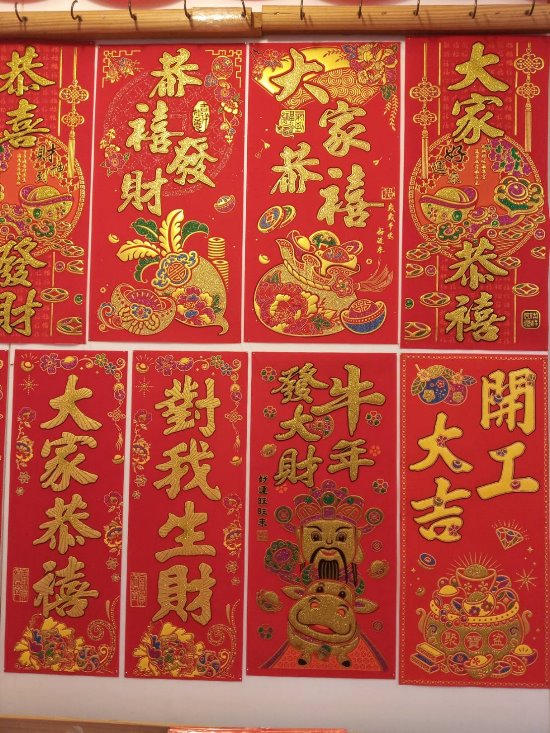 恭喜
發財
恭禧
發財
大家
恭禧
大家
恭禧
大家恭禧
對我生財
牛年
發大財
好運旺旺來
開工
大吉
聚寶盆